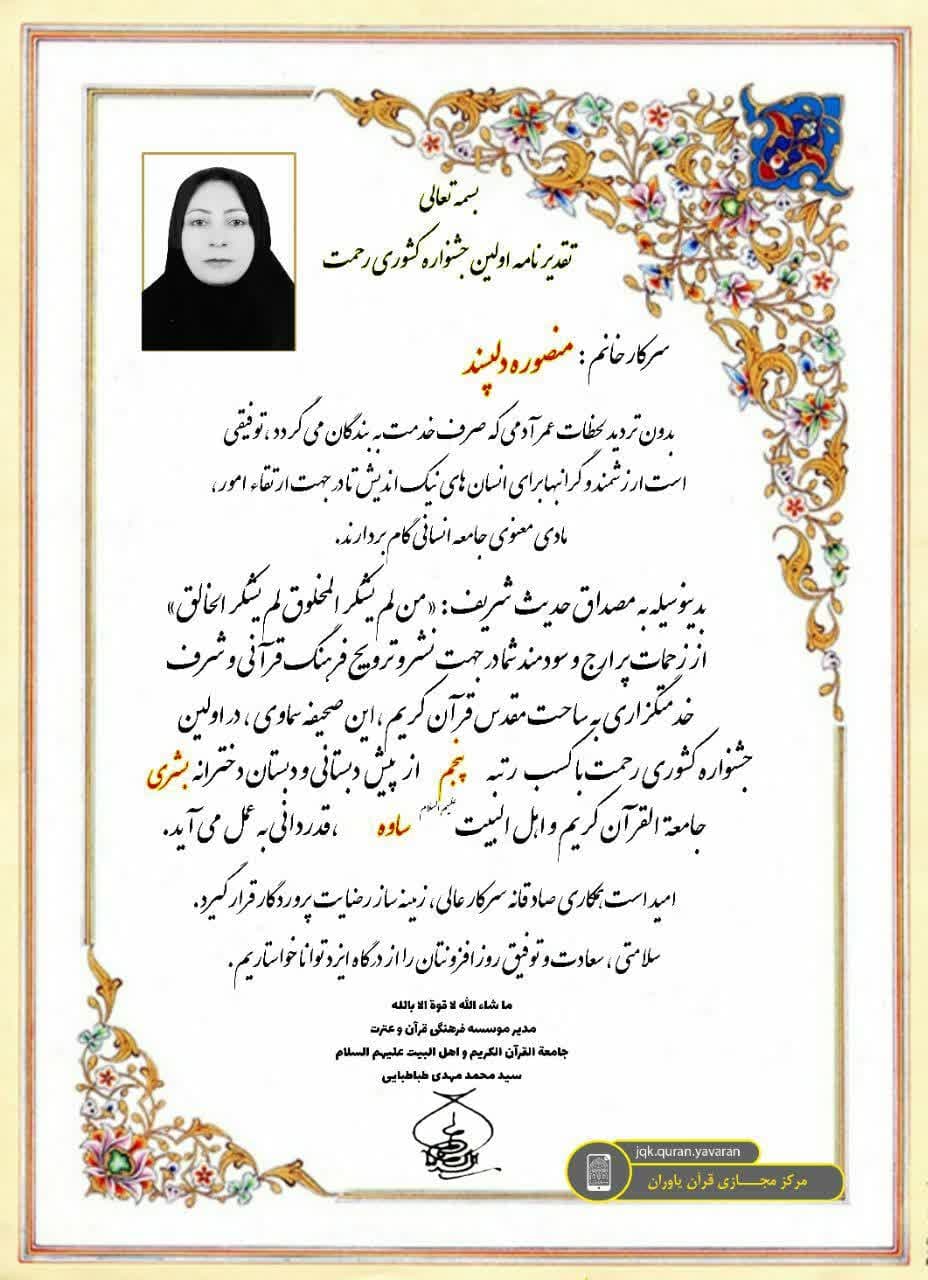 بسمه تعالی
تقدیر نامه اولین جشنواره کشوری رحمت
سرکار خانم : منصوره دلپسند
بدون تردید لحظات عمر آدمی که صرف خدمت به بندگان می گردد ، توفیقی
است ارزشمند و گرانبها برای انسان های نیک اندیش تا در جهت ارتقاء امور ،
مادی معنوی جامعه انسانی گام بردارند.
بدینوسیله به مصداق حدیث شریف : «من لم یشکر المخلوق لم یشکر الخالق»
از زحمات پر ارج و سودمند شما در جهت نشر و ترویج فرهنگ قرآنی و شرف
خدمتگزاری به ساحت مقدس قرآن کریم ، این صحیفه سماوی ، در اولین
جشنواره کشوری رحمت با کسب رتبه پنجم از پیش دبستانی و دبستان دخترانه بشری
جامعة القرآن کریم و اهل البیت علیهم السلام ساوه ، قدردانی به عمل می آید.
امید است همکاری صادقانه سرکار عالی، زمینه ساز رضایت پروردگار قرار گیرد.
سلامتی ، سعادت و توفیق روز افزونتان را از درگاه ایزد توانا خواستاریم.
ما شاء الله لا قوة الا بالله
مدیر موسسه فرهنگی قرآن و عترت
جامعة القرآن الکریم و اهل البیت علیهم السلام
سید محمد مهدی طباطبایی
jqk.quran.yavaran
مرکز مجـــازی قرآن یاوران